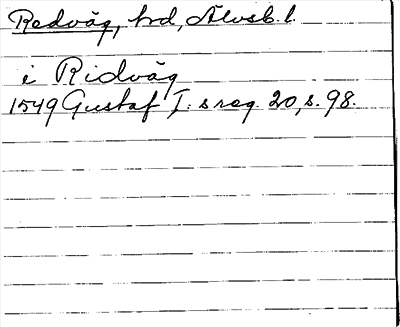 Redväg, hd, Älvsb. l.
i Ridvåg
1549 Gustaf I:s reg. 20, s. 98.